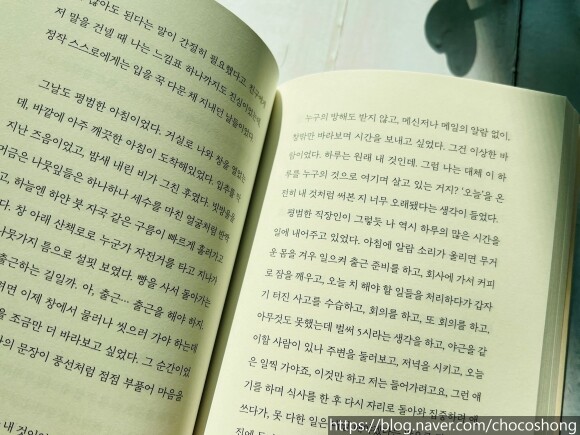 않아도 된다는 말이 간절히 필요했다고. 친구에게
저 말을 건넬 때 나는 느낌표 하나까지도 진심이었는데,
정작 스스로에게는 입을 꾹 다문 채 지내던 날들이었다.
그날도 평범한 아침이었다. 거실로 나와 창을 열었는
데, 바깥에 아주 깨끗한 아침이 도착해있었다. 입추를 막
지난 즈음이었고, 밤새 내린 비가 그친 후였다. 빗방울을
머금은 나뭇잎들은 하나하나 세수를 마친 얼굴처럼 반짝
고, 하늘엔 하얀 붓 자국 같은 구름이 빠르게 흘러가고
다. 창 아래 산책로로 누군가 자전거를 타고 지나가
나뭇가지 틈으로 설핏 보였다. 빵을 사서 돌아가는
출근하는 길일까. 아, 출근… 출근을 해야 하지.
려면 이제 창에서 물러나 씻으러 가야 하는데
을 조금만 더 바라보고 싶었다. 그 순간이었
의 문장이 풍선처럼 점점 부풀어 마음을
내 것이
누구의 방해도 받지 않고, 메신저나 메일의 알람 없이,
창밖만 바라보며 시간을 보내고 싶었다. 그건 이상한 바
람이었다. 하루는 원래 내 것인데. 그럼 나는 대체 이 하
루를 누구의 것으로 여기며 살고 있는 거지? '오늘'을 온
전히 내 것처럼 써본 지 너무 오래됐다는 생각이 들었다.
평범한 직장인이 그렇듯 나 역시 하루의 많은 시간을
일에 내어주고 있었다. 아침에 알람 소리가 울리면 무거
운 몸을 겨우 일으켜 출근 준비를 하고, 회사에 가서 커피
로 잠을 깨우고, 오늘 치 해야 할 일들을 처리하다가 갑자
기 터진 사고를 수습하고, 회의를 하고, 또 회의를 하고,
아무것도 못했는데 벌써 5시라는 생각을 하고, 야근을 같
이할 사람이 있나 주변을 둘러보고, 저녁을 시키고, 오늘
은 일찍 가야죠, 이것만 하고 저는 들어가려고요, 그런 얘
기를 하며 식사를 한 후 다시 자리로 돌아와 집중하려 애
쓰다가, 못 다한 일은
전에 도
https://blog.naver.com/chocoshong